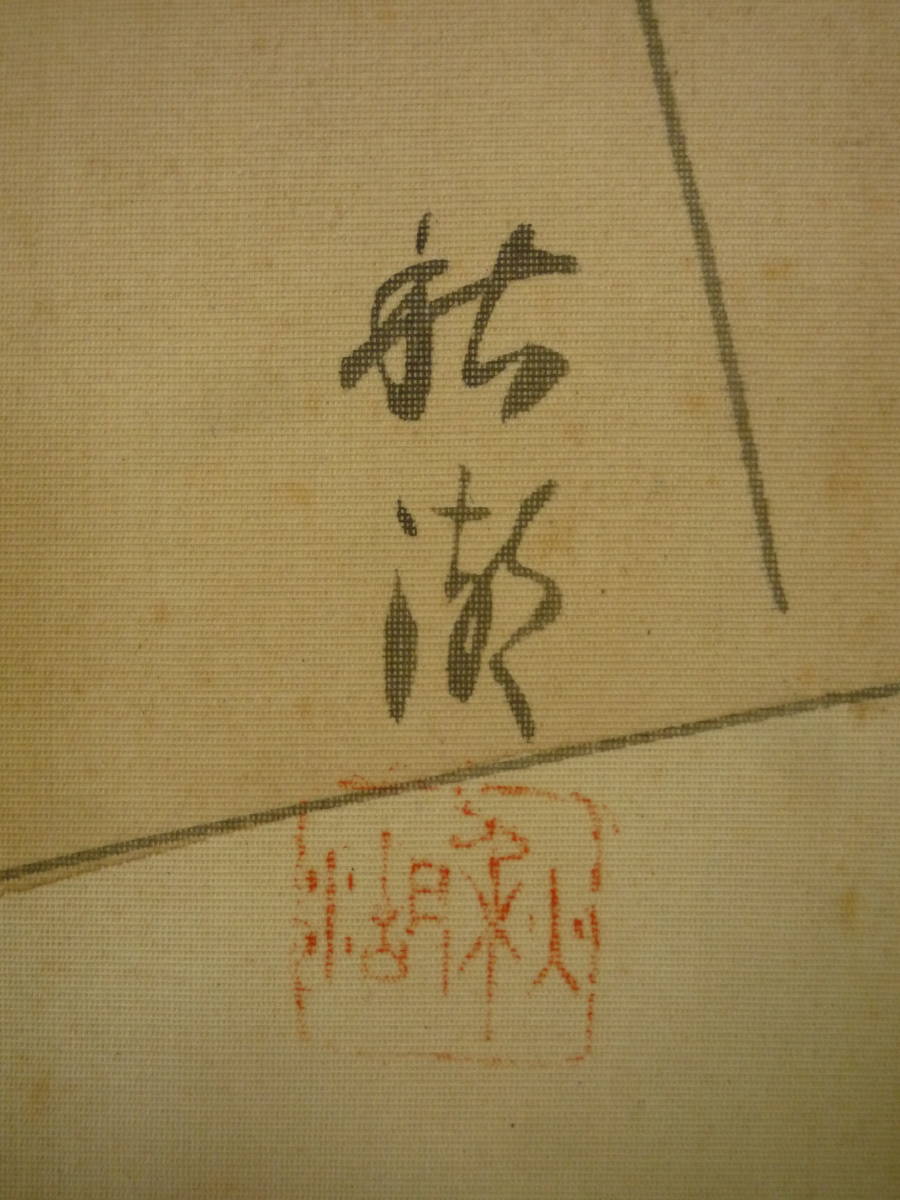 秋湖
秋湖